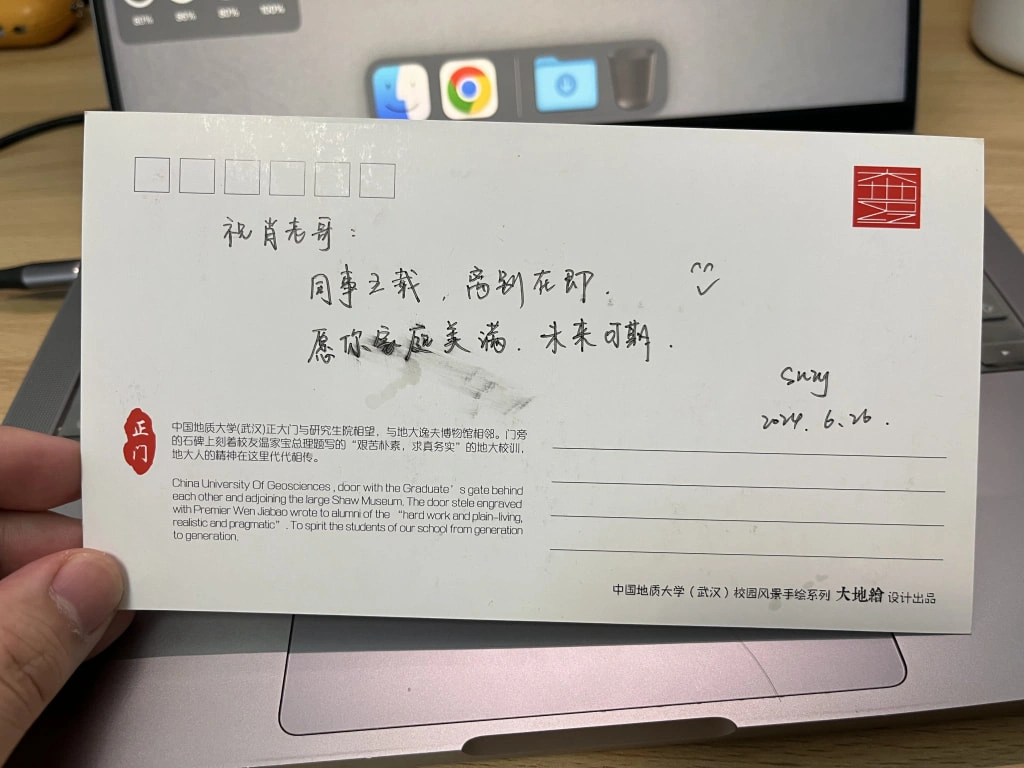 80% 86% 80% 100%
祝肖老哥：
同事三载，离别在即.
愿你家庭美满. 未来可期.
Suzy
2024. 6. 26.
正门
中国地质大学(武汉)正大门与研究生院相望，与地大逸夫博物馆相邻。门旁
的石碑上刻着校友温家宝总理题写的“艰苦朴素，求真务实”的地大校训，
地大人的精神在这里代代相传。
China University Of Geosciences , door with the Graduate’s gate behind
each other and adjoining the large Shaw Museum. The door stele engraved
with Premier Wen Jiabao wrote to alumni of the “hard work and plain-living,
realistic and pragmatic”. To spirit the students of our school from generation
to generation.
中国地质大学（武汉）校园风景手绘系列 大地绘 设计出品